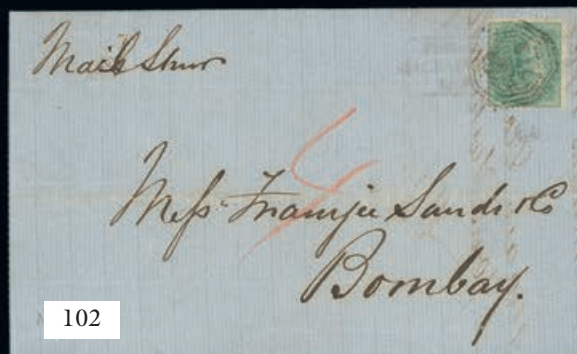 Mail Stmr
Messrs Framjee Sands & Co
Bombay.
102